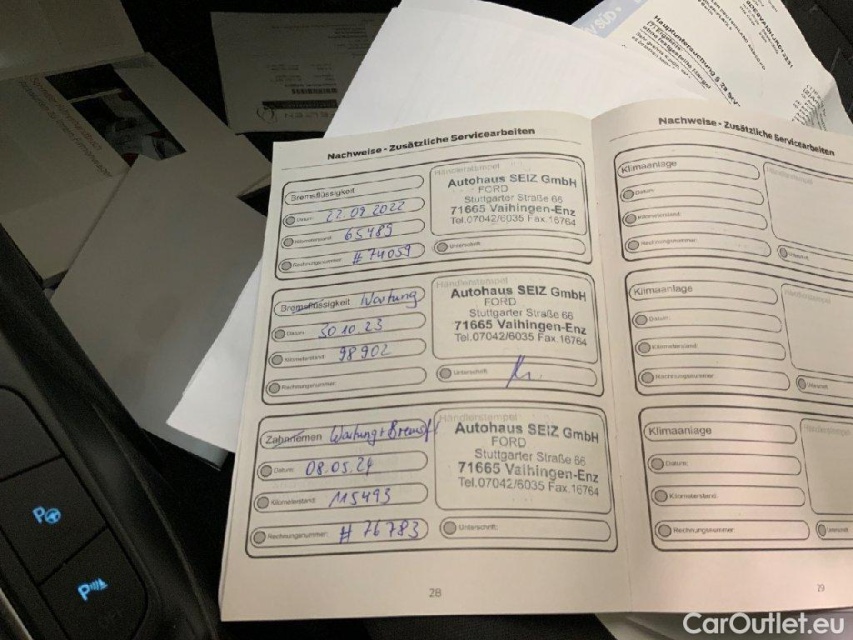 Hauptuntersuchung § 29
Nachweise - Zusätzliche Servicearbeiten
Bremsflüssigkeit
Datum: 22.09.2022
Kilometerstand: 65489
Rechnungsnummer: #74059
Händlerstempel
Autohaus SEIZ GmbH
FORD
Stuttgarter Straße 66
71665 Vaihingen-Enz
Tel.07042/6035 Fax 16764
Unterschrift:
Bremsflüssigkeit Wartung
Datum: 30 10 23
Kilometerstand: 98 902
Rechnungsnummer:
Händlerstempel
Autohaus SEIZ GmbH
FORD
Stuttgarter Straße 66
71665 Vaihingen-Enz
Tel.07042/6035 Fax 16764
Unterschrift:
Zahnriemen Wartung+Bremsfl
Datum: 08.05.24
Kilometerstand: 115493
Rechnungsnummer: #76783
Händlerstempel
Autohaus SEIZ GmbH
FORD
Stuttgarter Straße 66
71665 Vaihingen-Enz
Tel.07042/6035 Fax 16764
Unterschrift:
28
Nachweise - Zusätzliche Servicearbeiten
Klimaanlage
Datum:
Kilometerstand:
Rechnungsnummer:
Händlerstempel
Klimaanlage
Datum:
Kilometerstand:
Rechnungsnummer:
Händlerstempel
Klimaanlage
Datum:
Kilometerstand:
Rechnungsnummer:
Händlerstempel
29
P
P
CarOutlet.eu